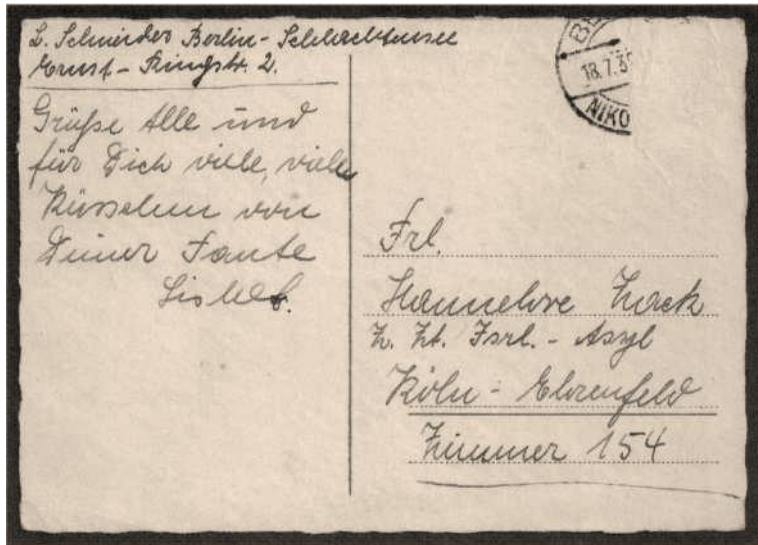 L. Schneider Berlin-Schlachtensee
Ernst-Ringstr. 2.
Grüße Alle und
für Dich viele, viele
Küsschen von
Deiner Tante
BE
18.7.3
NIKO
Frl.
Hannelore Zack
z. Zt. Isrl.-Asyl
Köln-Ehrenfeld
Zimmer 154